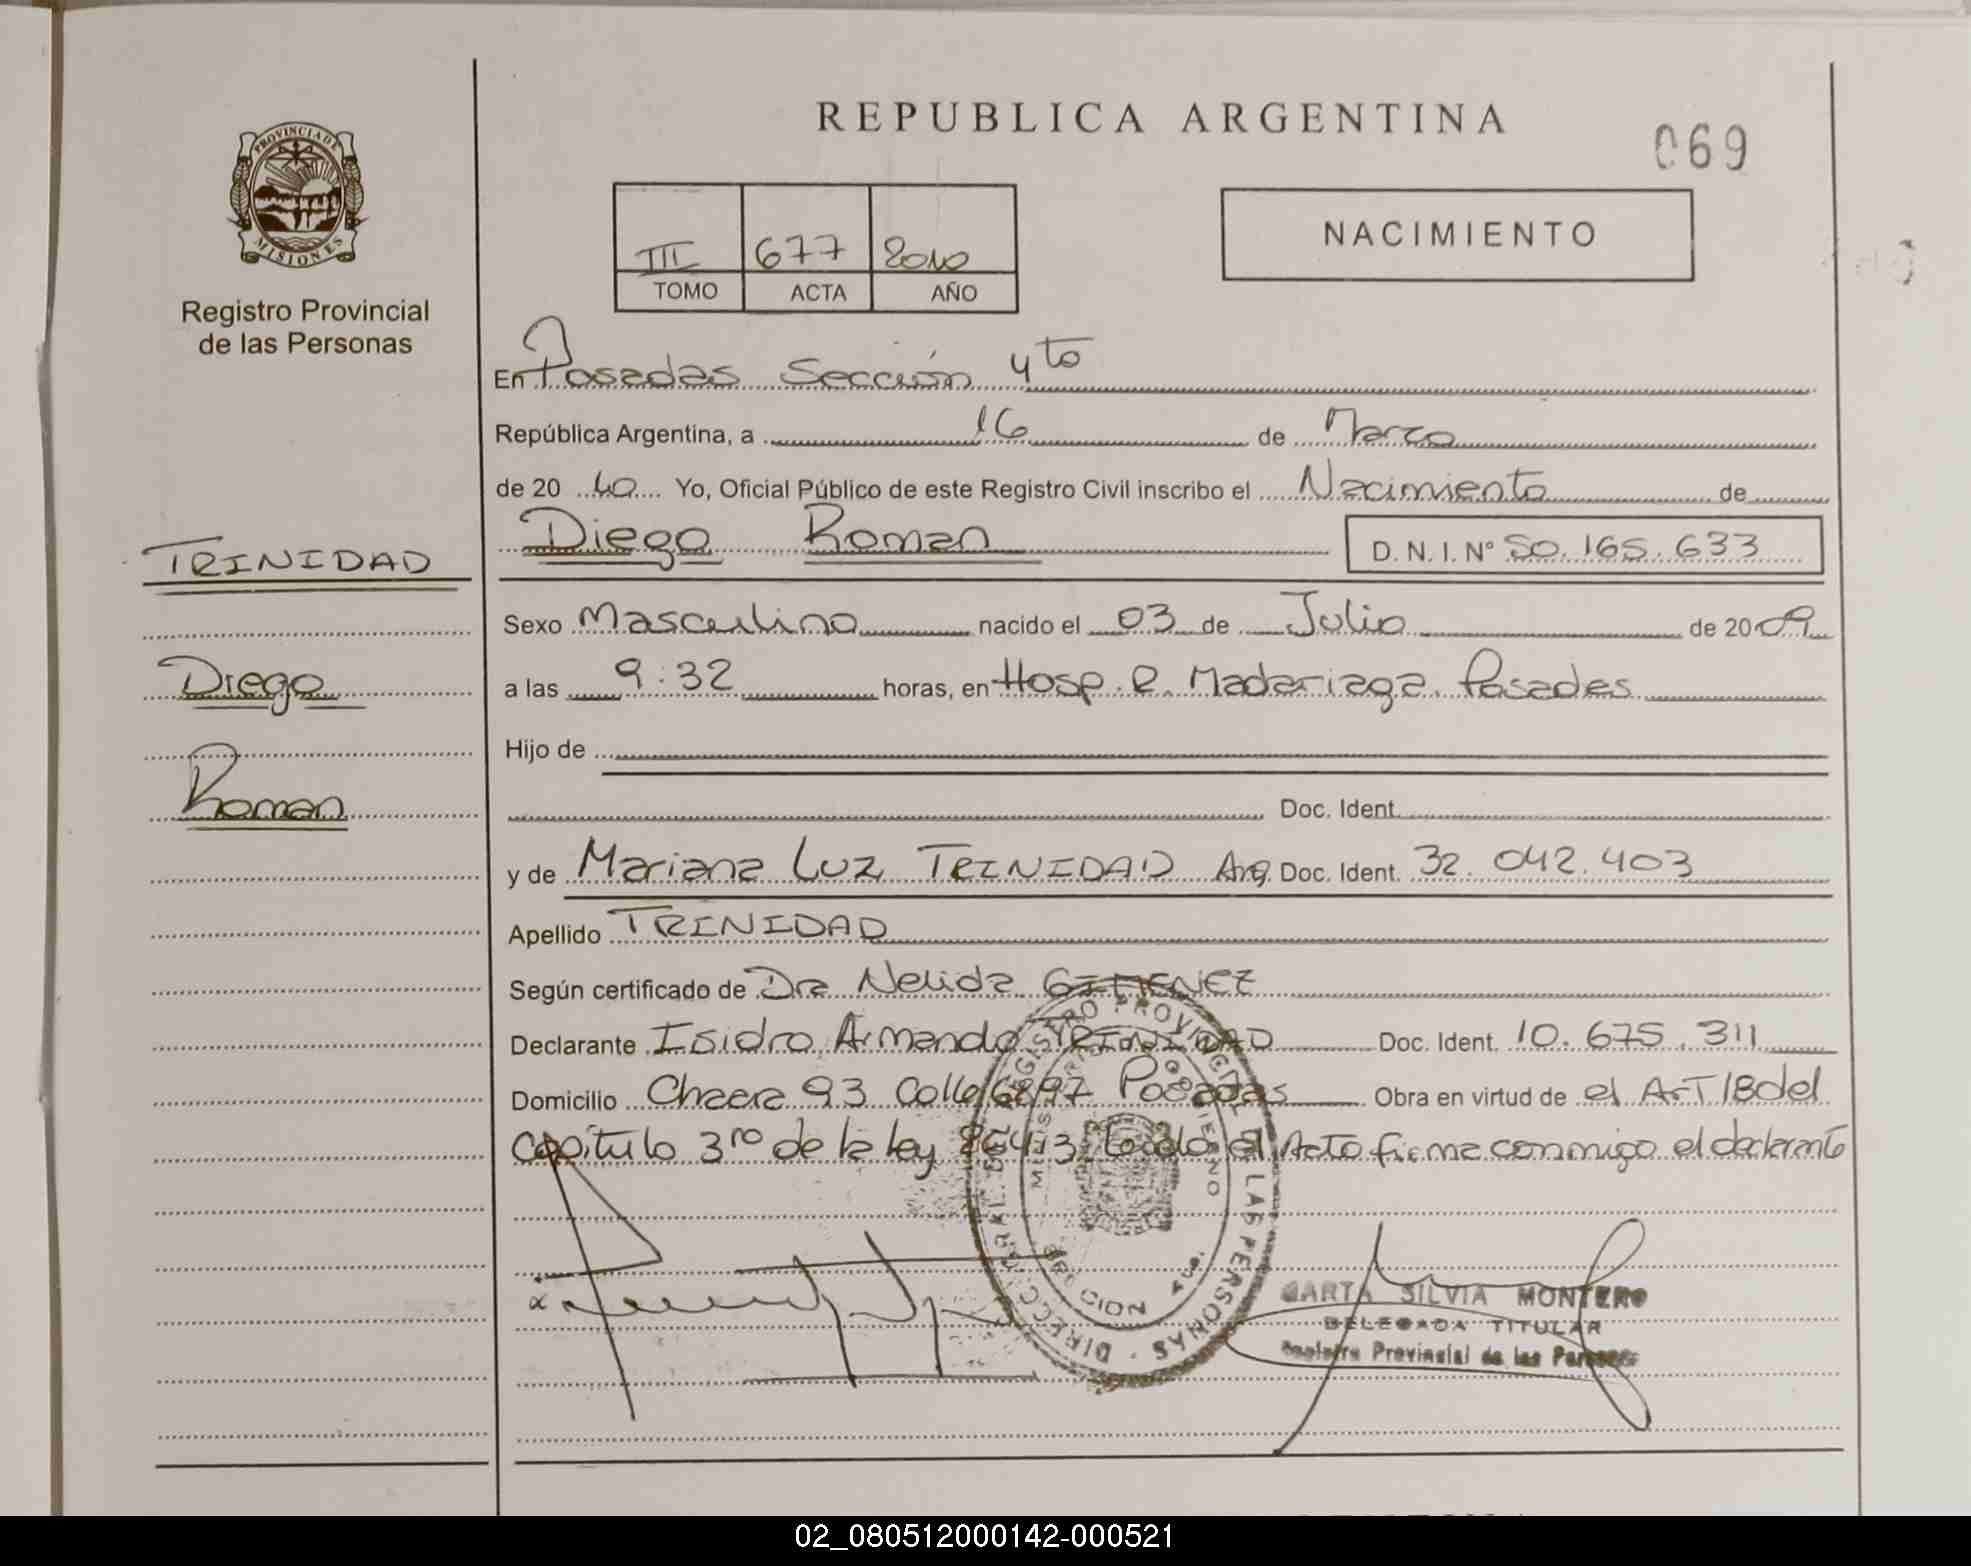 REPUBLICA ARGENTINA
069
PROVINCIA DE
MISIONES
Registro Provincial
de las Personas
III 677 2010
TOMO ACTA AÑO
NACIMIENTO
En Posadas Sección 4to
República Argentina, a 16 de Marzo
de 20 10 Yo, Oficial Público de este Registro Civil inscribo el Nacimiento de
Diego Roman D.N.I.Nº 50.165.633
TRINIDAD
Diego
Roman
Sexo Masculino nacido el 03 de Julio de 2009
a las 9:32 horas, en Hosp. R. Madariaga. Posadas
Hijo de
Doc. Ident.
y de Mariana Luz TRINIDAD Arg. Doc. Ident. 32.042.403
Apellido TRINIDAD
Según certificado de Dra Nelida GIMENEZ
Declarante Isidro Armando TRINIDAD Doc. Ident. 10.675.311
Domicilio Chacra 93 Calle Posadas Obra en virtud de el ArT 18 del
Capitulo 3ro de la ley Leido el Acto firma conmigo el declarante
MARTA SILVIA MONTERO
DELEGADA TITULAR
Registro Provincial de las Personas
02_080512000142-000521